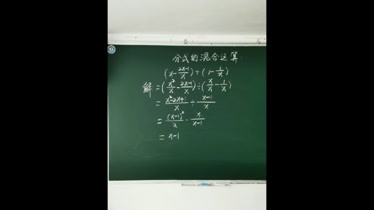 分式的混合运算
(x - \frac{2x-1}{x}) ÷ (1 - \frac{1}{x})
解 = (\frac{x²}{x} - \frac{2x-1}{x}) ÷ (\frac{x}{x} - \frac{1}{x})
= \frac{x²-2x+1}{x} ÷ \frac{x-1}{x}
= \frac{(x-1)²}{x} · \frac{x}{x-1}
= x-1